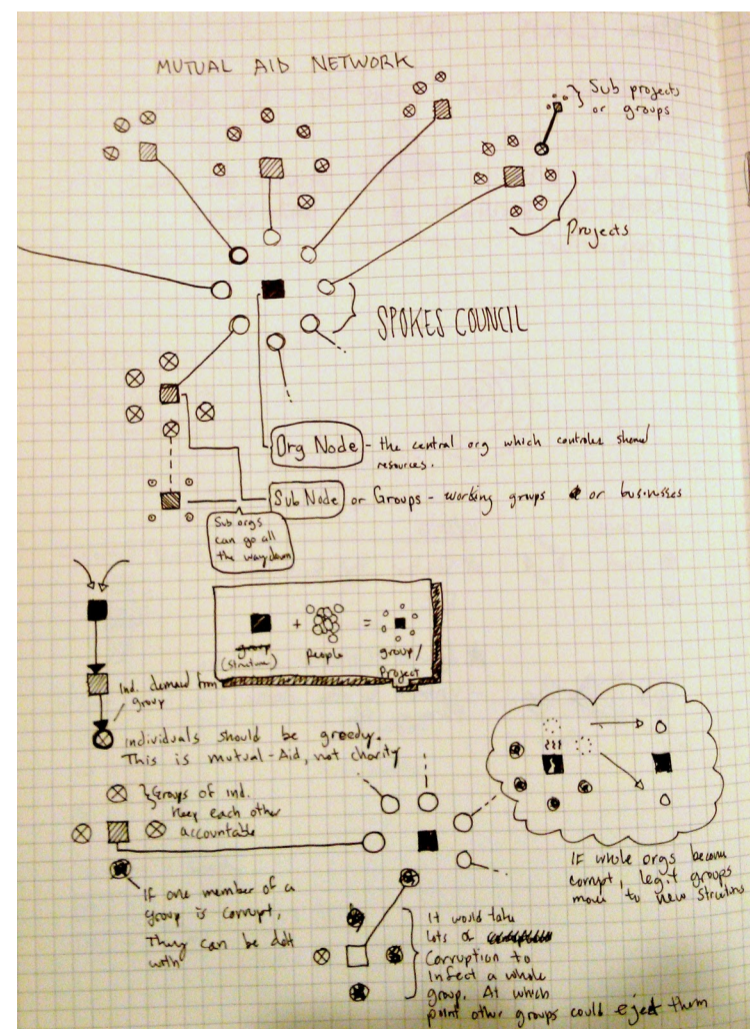 MUTUAL AID NETWORK
} Sub projects
or groups
Projects
SPOKES COUNCIL
Org Node - the central org which controles shared
resources.
Sub Node or Groups - working groups or businesses
Sub orgs
can go all
the way down
+ =
group
(structure)
people
group/
Project
Ind. demand from
group
individuals should be greedy.
This is mutual-Aid, not charity
} Groups of ind.
keep each other
accountable
If one member of a
group is corrupt,
They can be delt
with
It would take
lots of
Corruption to
Infect a whole
group. At which
point other groups could eject them
IF whole orgs become
corrupt, legit groups
move to new Structures